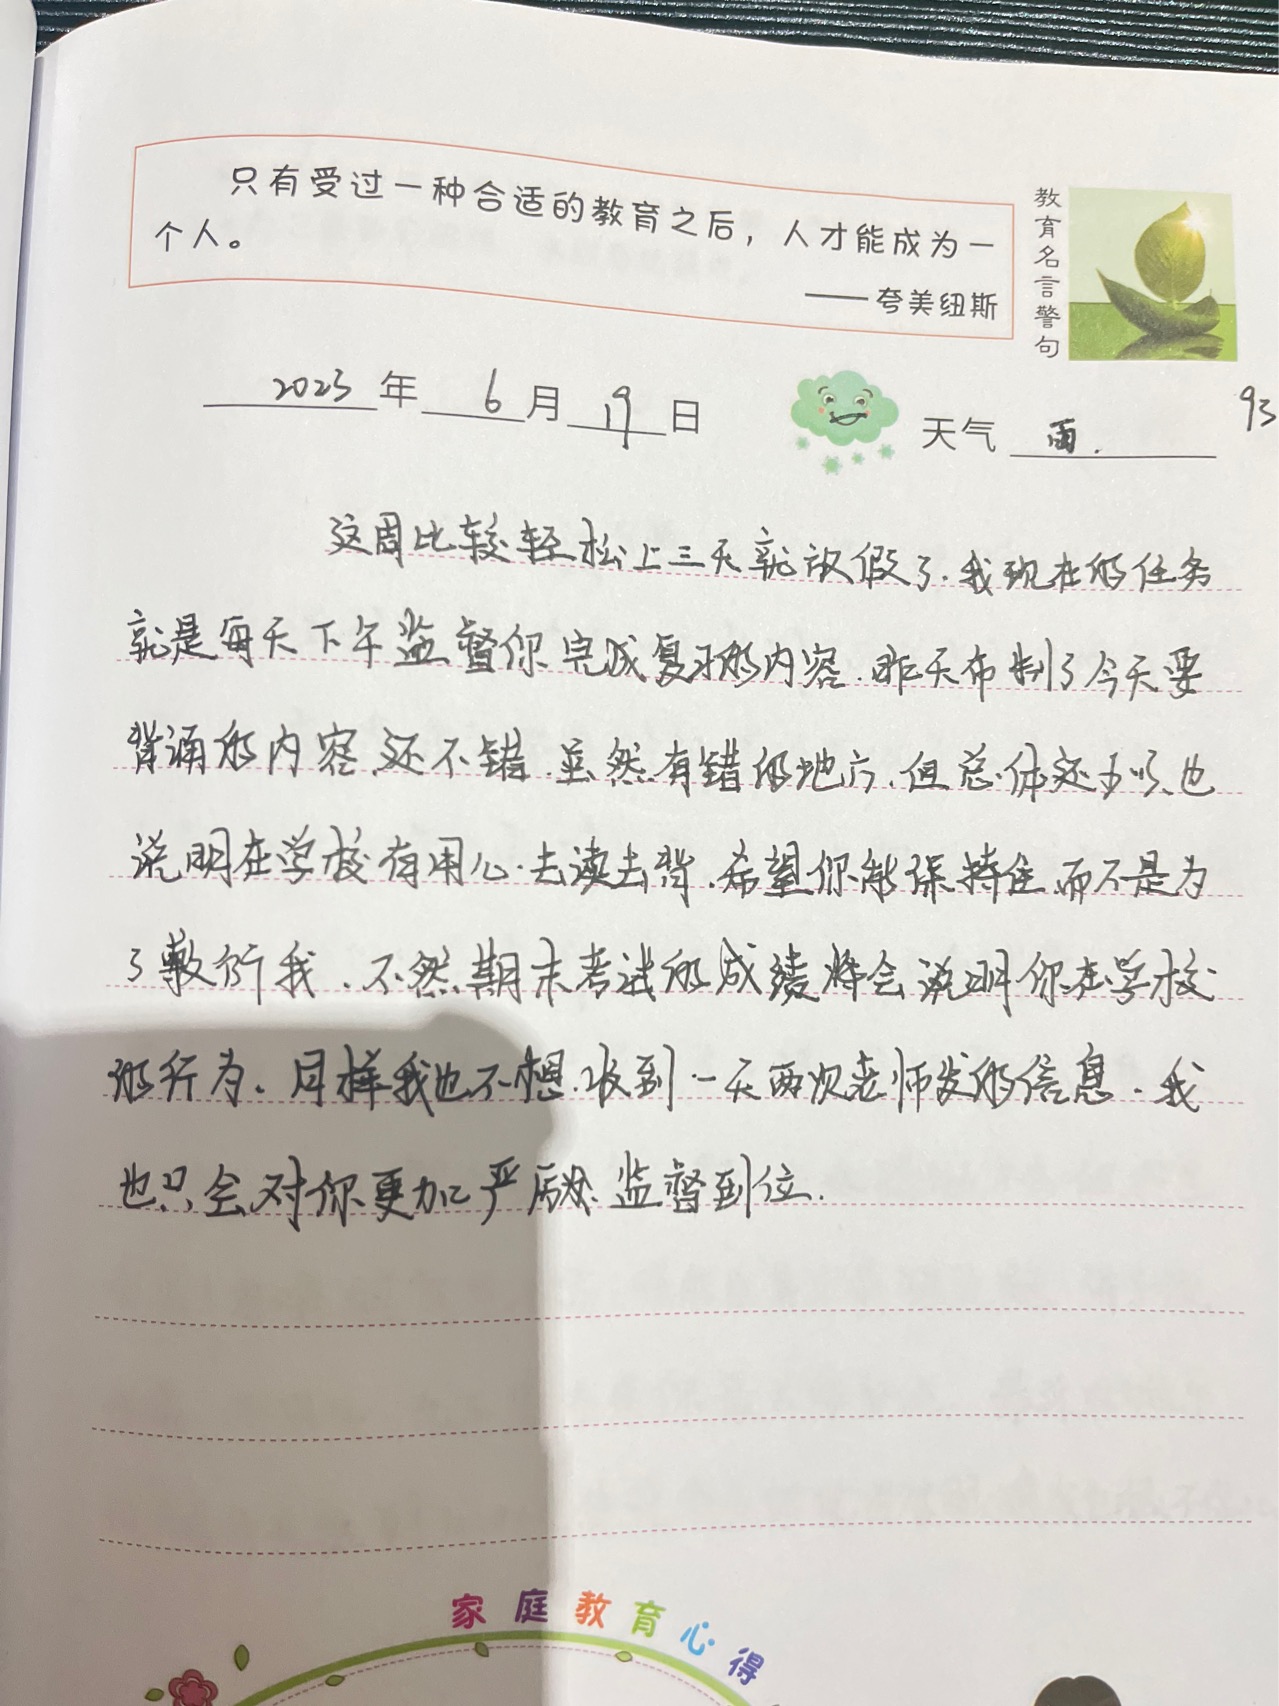 只有受过一种合适的教育之后，人才能成为一
个人。
——夸美纽斯
教育名言警句
2023年6月19日
天气 雨.
93
这周比较轻松上三天就放假了.我现在的任务
就是每天下午监督你完成复习的内容.昨天布制了今天要
背诵的内容、还不错.虽然有错的地方.但总体还可以、也
说明在学校有用心去读去背.希望你能保持住.而不是为
了敷衍我.不然期末考试的成绩将会说明你在学校
的行为。同样我也不想.收到一天两次老师发的信息.我
也只会对你更加严厉.监督到位.
家庭教育心得